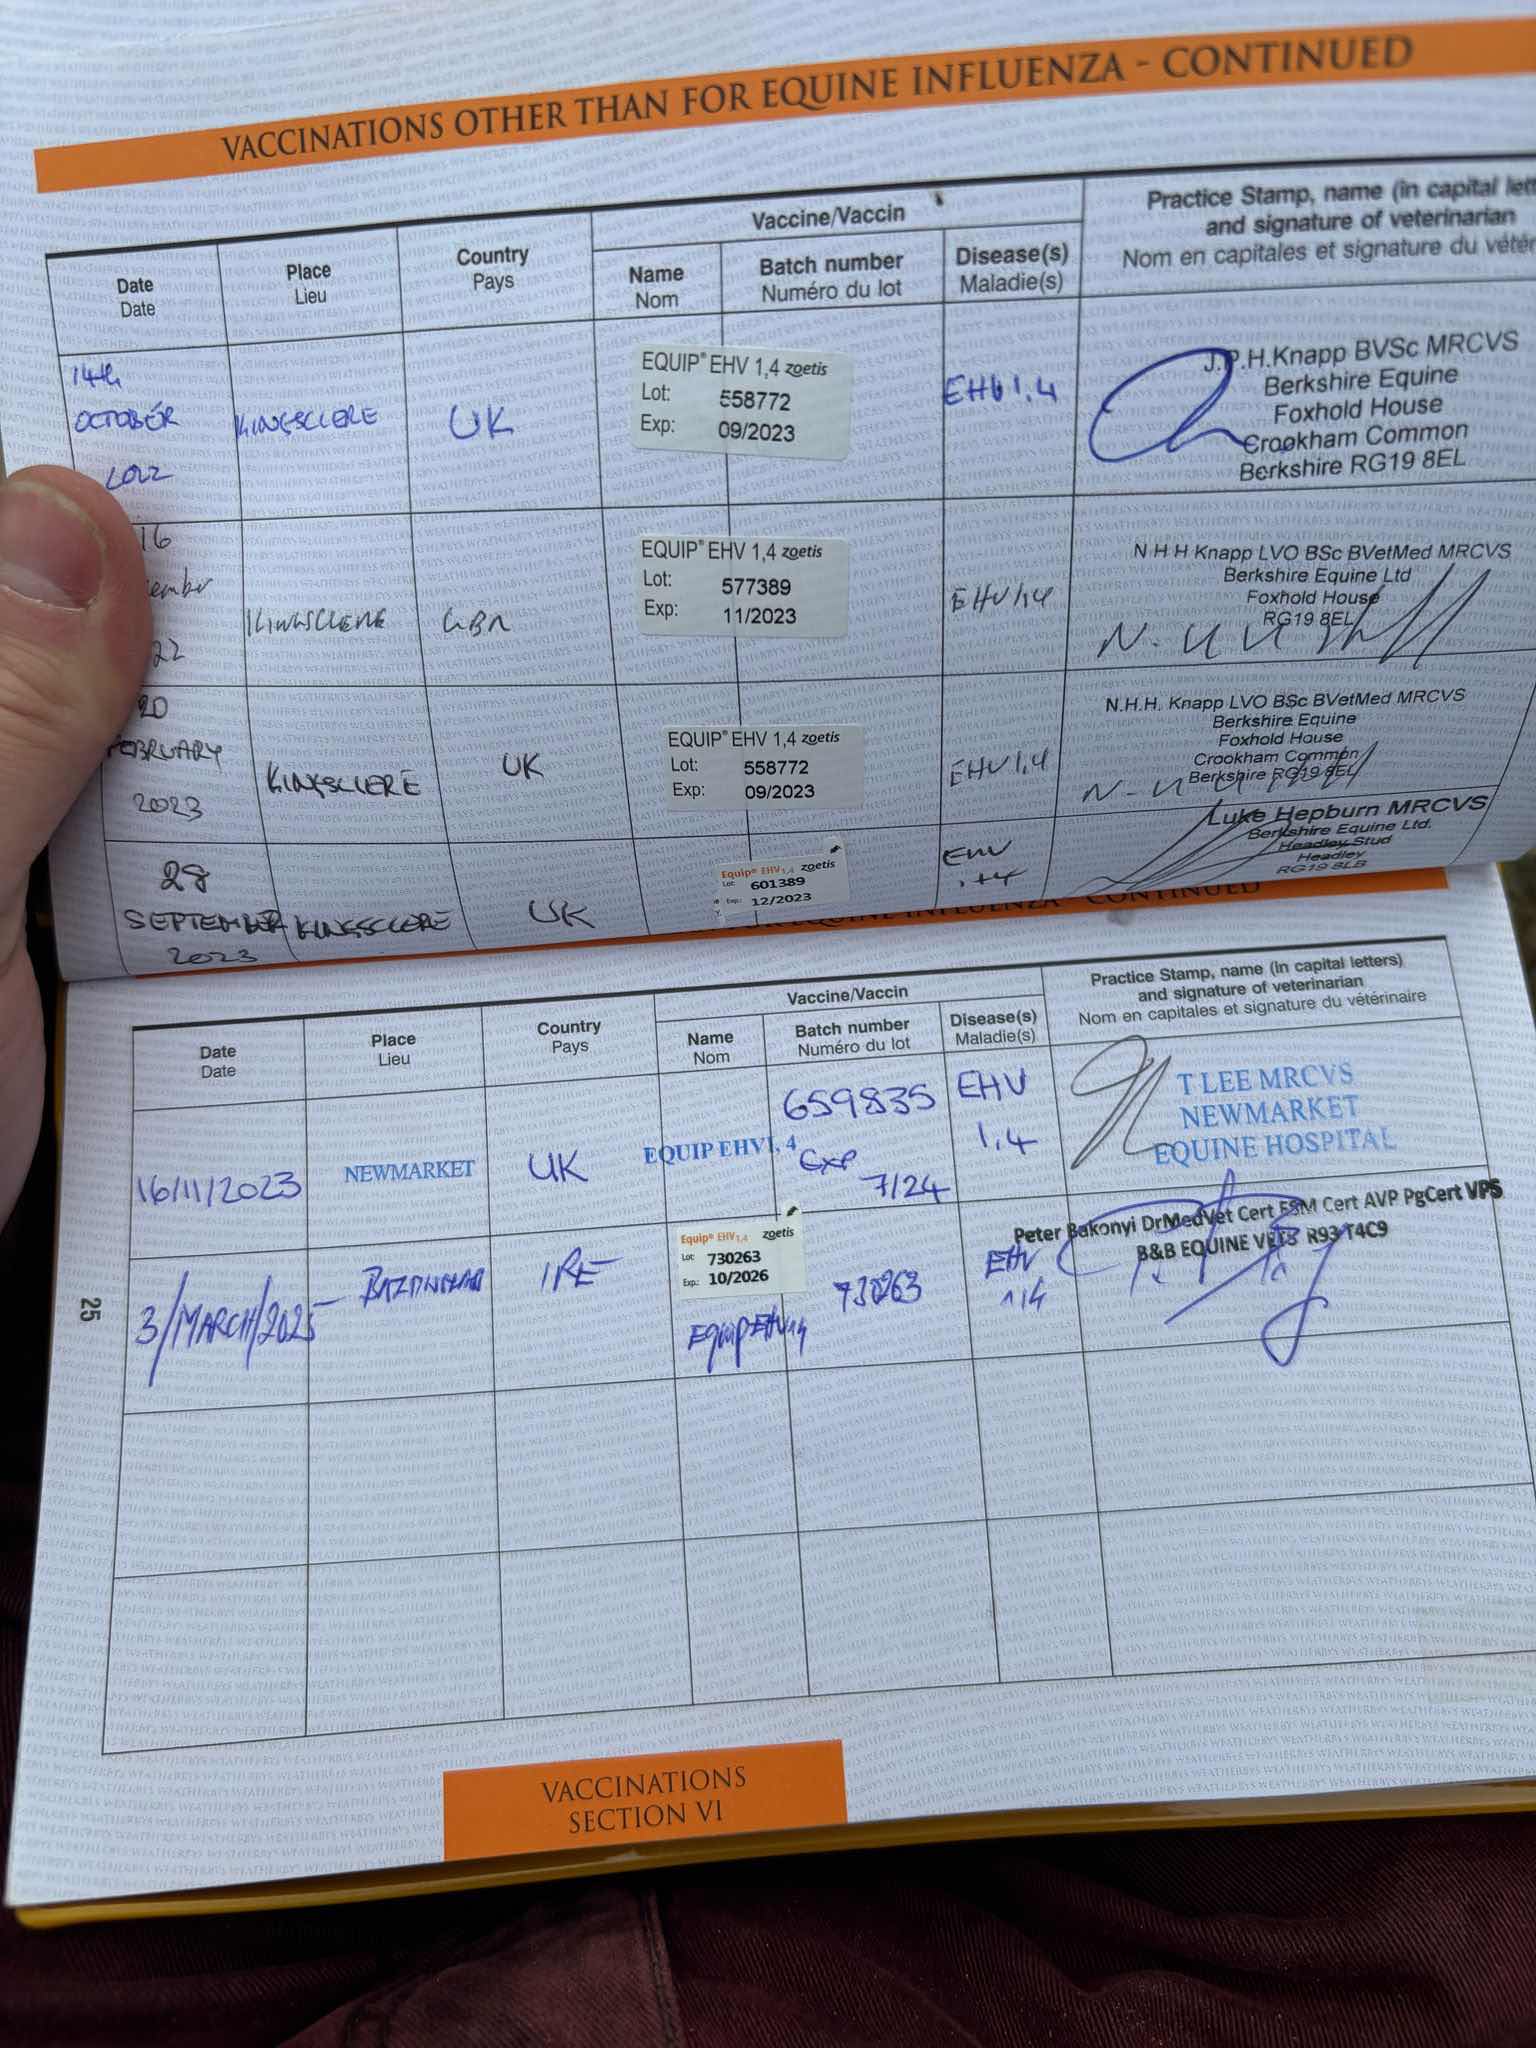 VACCINATIONS OTHER THAN FOR EQUINE INFLUENZA - CONTINUED
Date
Date
Place
Lieu
Country
Pays
Vaccine/Vaccin
Name
Nom
Batch number
Numéro du lot
Disease(s)
Maladie(s)
Practice Stamp, name (in capital lett
and signature of veterinarian
Nom en capitales et signature du vétér
14th
OCTOBER
2022
KINGSCLERE
UK
EQUIP® EHV 1,4 zoetis
Lot: 558772
Exp: 09/2023
EHV 1,4
J.P.H.Knapp BVSc MRCVS
Berkshire Equine
Foxhold House
Crookham Common
Berkshire RG19 8EL
16
ember
22
KINGSCLERE
GBR
EQUIP® EHV 1,4 zoetis
Lot: 577389
Exp: 11/2023
EHV 1,4
N H H Knapp LVO BSc BVetMed MRCVS
Berkshire Equine Ltd
Foxhold House
RG19 8EL
20
FEBRUARY
2023
KINGSCLERE
UK
EQUIP® EHV 1,4 zoetis
Lot: 558772
Exp: 09/2023
EHV 1,4
N.H.H. Knapp LVO BSc BVetMed MRCVS
Berkshire Equine
Foxhold House
Crookham Common
Berkshire RG19 8EL
28
SEPTEMBER
2023
KINGSCLERE
UK
Equip® EHV1,4 zoetis
Lot: 601389
Exp.: 12/2023
EHV
1+4
Luke Hepburn MRCVS
Berkshire Equine Ltd.
Headley Stud
Headley
RG19 8LB
EQUINE INFLUENZA - CONTINUED
Date
Date
Place
Lieu
Country
Pays
Vaccine/Vaccin
Name
Nom
Batch number
Numéro du lot
Disease(s)
Maladie(s)
Practice Stamp, name (in capital letters)
and signature of veterinarian
Nom en capitales et signature du vétérinaire
16/11/2023
NEWMARKET
UK
EQUIP EHV1, 4
659835
Exp
7/24
EHV
1,4
T LEE MRCVS
NEWMARKET
EQUINE HOSPITAL
3/MARCH/2025
IRE
Equip® EHV1,4 zoetis
Lot: 730263
Exp.: 10/2026
Equip EHV1,4
730263
EHV
1,4
Peter Bakonyi DrMedVet Cert ESM Cert AVP PgCert VPS
B&B EQUINE VETS R93 T4C9
25
VACCINATIONS
SECTION VI